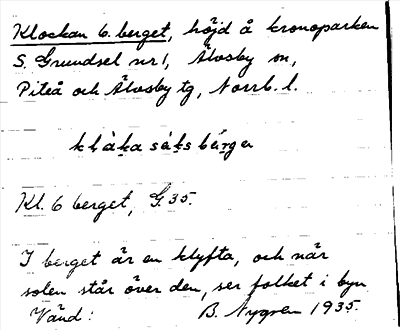 Klockan 6. berget, höjd å kronoparken
S. Grundsel nr 1, Älvsby sn,
Piteå och Älvsby tg, Norrb. l.
klåka säks bärge
Kl. 6 berget, G. 35.
I berget är en klyfta, och när
solen står över den, ser folket i byn
Vänd! B. Nygren 1935.